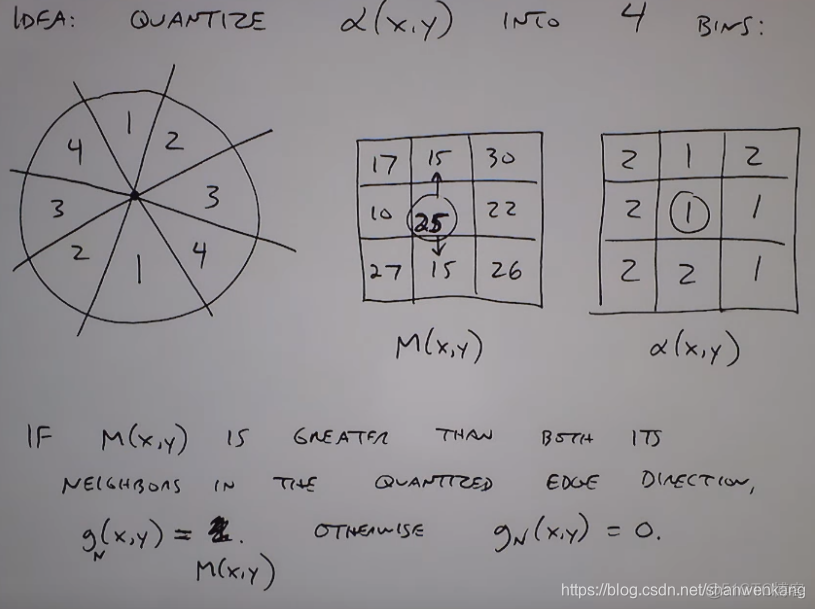 IDEA: QUANTIZE α(x,y) INTO 4 BINS:
1
4 2
3 3
2 4
1
17 15 30
10 25 22
27 15 26
M(x,y)
2 1 2
2 1 1
2 2 1
α(x,y)
IF M(x,y) IS GREATER THAN BOTH ITS
NEIGHBORS IN THE QUANTIZED EDGE DIRECTION,
gN(x,y) = . OTHERWISE gN(x,y) = 0.
M(x,y)
https://blog.csdn.net/shanwenkang